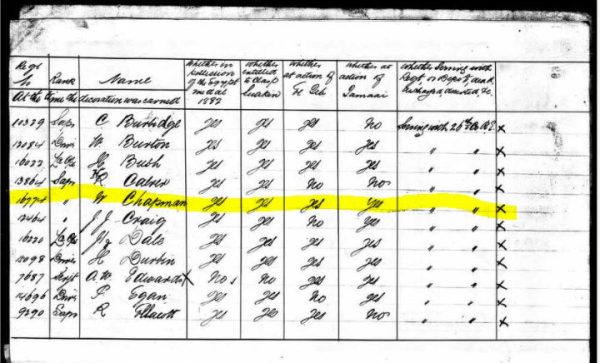 Regl No Rank Name Whether in possession of the Egypt medal 1882 Whether entitled to Clasp Suakin Whether at action of El Teb Whether at action of Tamaai Whether Serving with Regt or Depot, dead, discharged, deserted, &c.
At the time the decoration was earned
10329 Sapr C Burbidge yes yes yes no Serving with 26th Co RE x
W Burton yes yes yes yes " " x
H Bush yes yes yes yes " " x
13864 Sapr R yes yes no no " " x
" W Chapman yes yes yes yes " " x
" J J Craig yes yes no yes " " x
Dale yes yes yes yes " " x
H Durbin yes yes yes yes " " x
7687 Serjt A.W. Edwards x no no yes yes " " x
Egan yes yes no yes " " x
9290 Sapr R yes yes yes no " " x